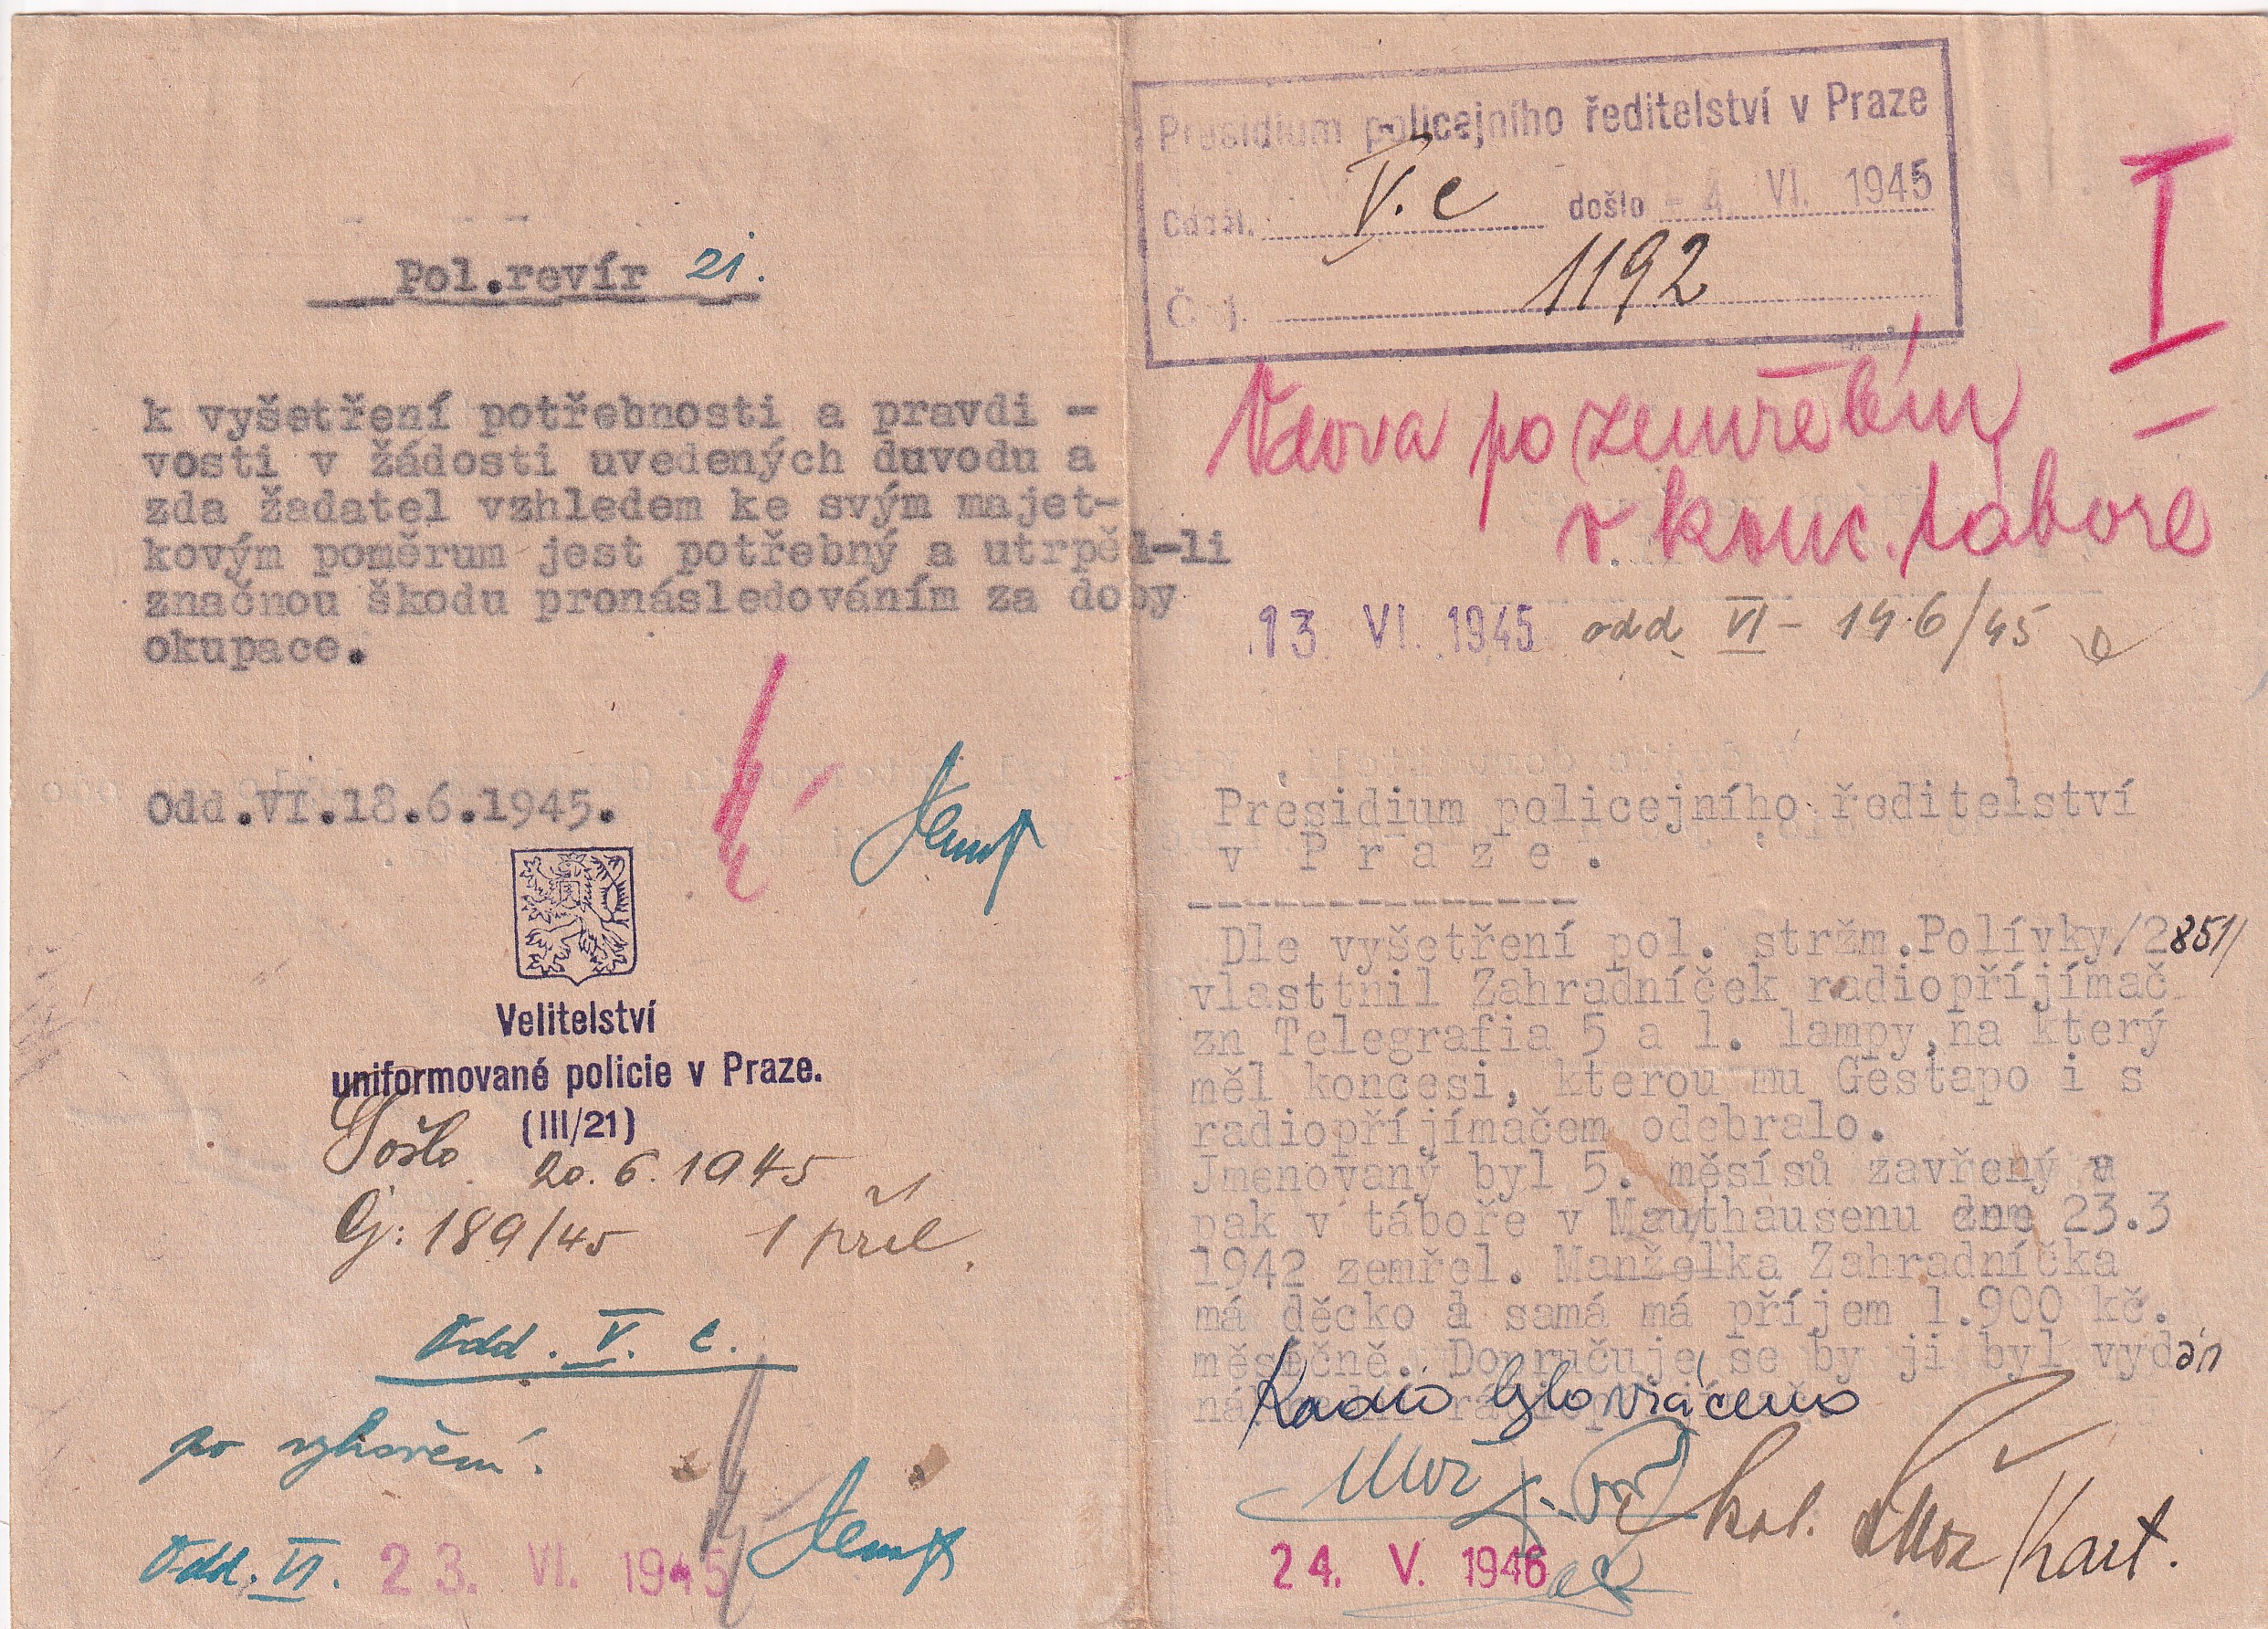 Pol.revír 21.
k vyšetření potřebnosti a pravdi -
vosti v žádosti uvedených duvodu a
zda žadatel vzhledem ke svým majet-
kovým poměrum jest potřebný a utrpěl-li
značnou škodu pronásledováním za doby
okupace.
Odd.VI.18.6.1945.
Velitelství
uniformované policie v Praze.
(III/21)
Došlo 20.6.1945
Čj: 189/45 1 příl.
Odd. V. c.
po vyhovění.
Odd. VI. 23. VI. 1945
Presidium policejního ředitelství v Praze
Odděl. V. c došlo - 4. VI. 1945
Č. j. 1192
I
Vdova po zemřelém
v konc. táboře
13. VI. 1945 odd. VI - 146/45
Presidium policejního ředitelství
v P r a z e .
Dle vyšetření pol. stržm.Polívky/2851/
vlasttnil Zahradníček radiopříjímač
zn Telegrafia 5 a 1. lampy,na který
měl koncesi, kterou mu Gestapo i s
radiopříjímačem odebralo.
Jmenovaný byl 5. měsísů zavřený a
pak v táboře v Mauthausenu dne 23.3
1942 zemřel. Manželka Zahradníčka
má děcko a samá má příjem 1.900 kč.
měsíčně. Doporučuje se by ji byl vydán
Radio bylo vráceno
kol. Kart.
24. V. 1946